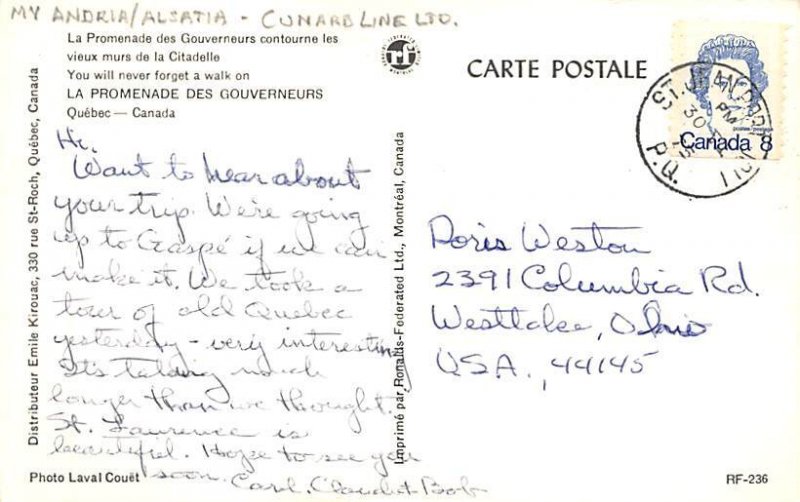 MV ANDRIA/ALSATIA - CUNARD LINE LTD.
La Promenade des Gouverneurs contourne les
vieux murs de la Citadelle
You will never forget a walk on
LA PROMENADE DES GOUVERNEURS
Québec — Canada
CARTE POSTALE
Canada 8
postes/postage
ST. JEAN PORT JOLI
30
PM
P.Q.
Distributeur Emile Kirouac, 330 rue St-Roch, Québec, Canada
Hi,
Want to hear about
your trip. We're going
up to Gaspé if we can
make it. We took a
tour of old Quebec
yesterday - very interesting
It's taking much
longer than we thought.
St. Laurence is
beautiful. Hope to see you
soon. Carl, Claudet Bob
Imprimé par Ronalds-Federated Ltd., Montréal, Canada
Doris Weston
2391 Columbia Rd.
Westlake, Ohio
USA., 44145
Photo Laval Couët
RF-236